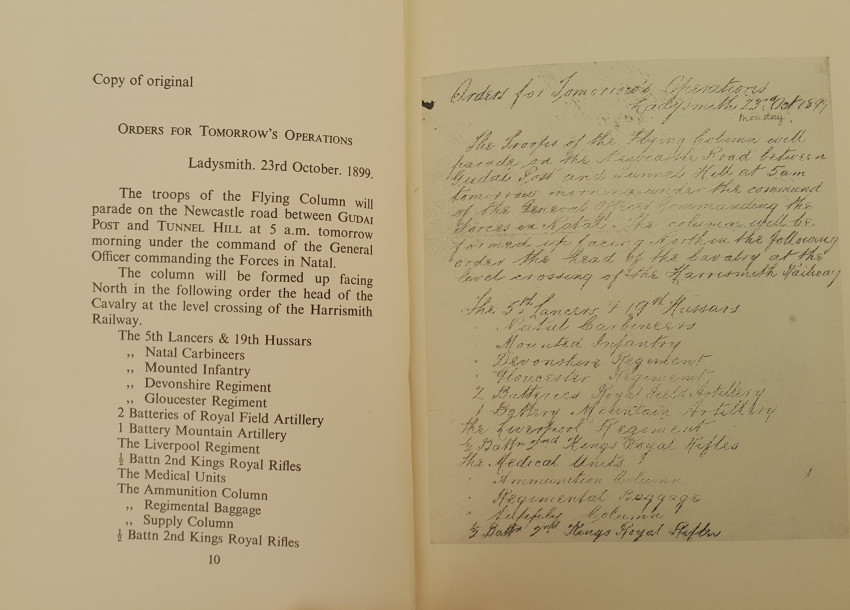 Copy of original
ORDERS FOR TOMORROW'S OPERATIONS
Ladysmith. 23rd October. 1899.
The troops of the Flying Column will
parade on the Newcastle road between GUDAI
POST and TUNNEL HILL at 5 a.m. tomorrow
morning under the command of the General
Officer commanding the Forces in Natal.
The column will be formed up facing
North in the following order the head of the
Cavalry at the level crossing of the Harrismith
Railway.
The 5th Lancers & 19th Hussars
,, Natal Carbineers
,, Mounted Infantry
,, Devonshire Regiment
,, Gloucester Regiment
2 Batteries of Royal Field Artillery
1 Battery Mountain Artillery
The Liverpool Regiment
½ Battn 2nd Kings Royal Rifles
The Medical Units
The Ammunition Column
,, Regimental Baggage
,, Supply Column
½ Battn 2nd Kings Royal Rifles
10
Orders for Tomorrow's Operations
Ladysmith 23rd Oct 1899
Monday.
The Troops of the Flying Column will
parade on the Newcastle Road between
Gudai Post and Tunnel Hill at 5 am
tomorrow morning under the command
of the General Officer Commanding the
Forces in Natal. The column will be
formed up facing North in the following
order the head of the Cavalry at the
level crossing of the Harrismith Railway
The 5th Lancers & 19th Hussars
" Natal Carbineers
" Mounted Infantry
" Devonshire Regiment
" Gloucester Regiment
2 Batteries Royal Field Artillery
1 Battery Mountain Artillery
The Liverpool Regiment
½ Battn 2nd Kings Royal Rifles
The Medical Units
" Ammunition Column
" Regimental Baggage
" Column
½ Battn 2nd Kings Royal Rifles